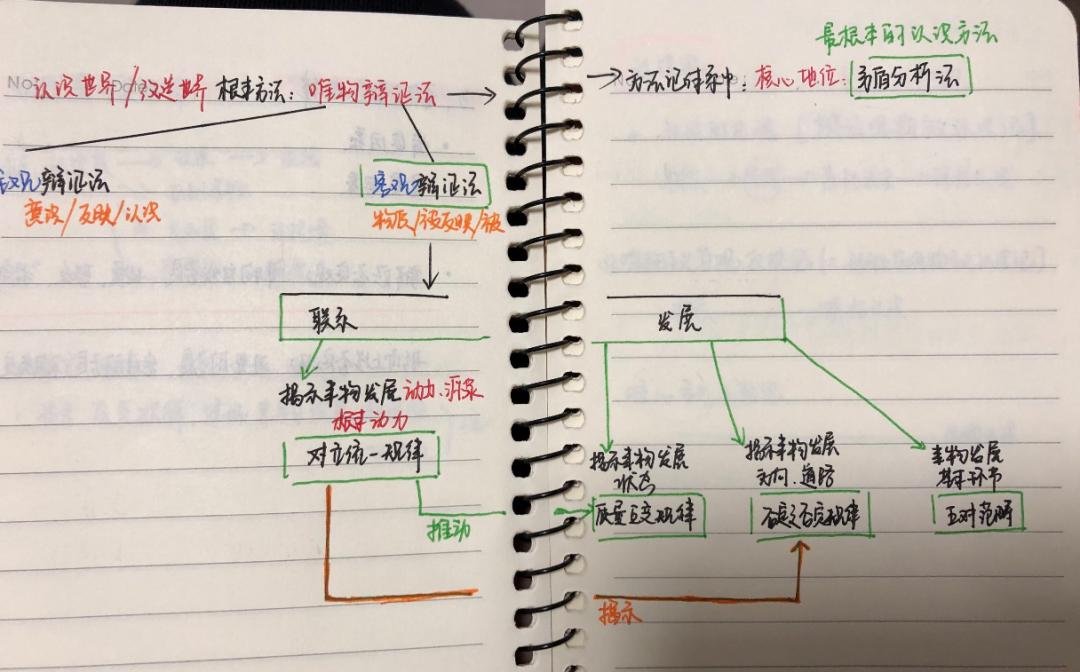 最根本的认识方法
认识世界/改造世界 根本方法：唯物辩证法 → → 方法论体系中：核心地位：矛盾分析法
主观辩证法 客观辩证法
意识/反映/认识 物质/被反映/被
联系 发展
揭示事物发展动力、源泉
根本动力
对立统一规律
揭示事物发展
状态
质量互变规律
揭示事物发展
方向、道路
否定之否定规律
事物发展
基本环节
五对范畴
推动
揭示